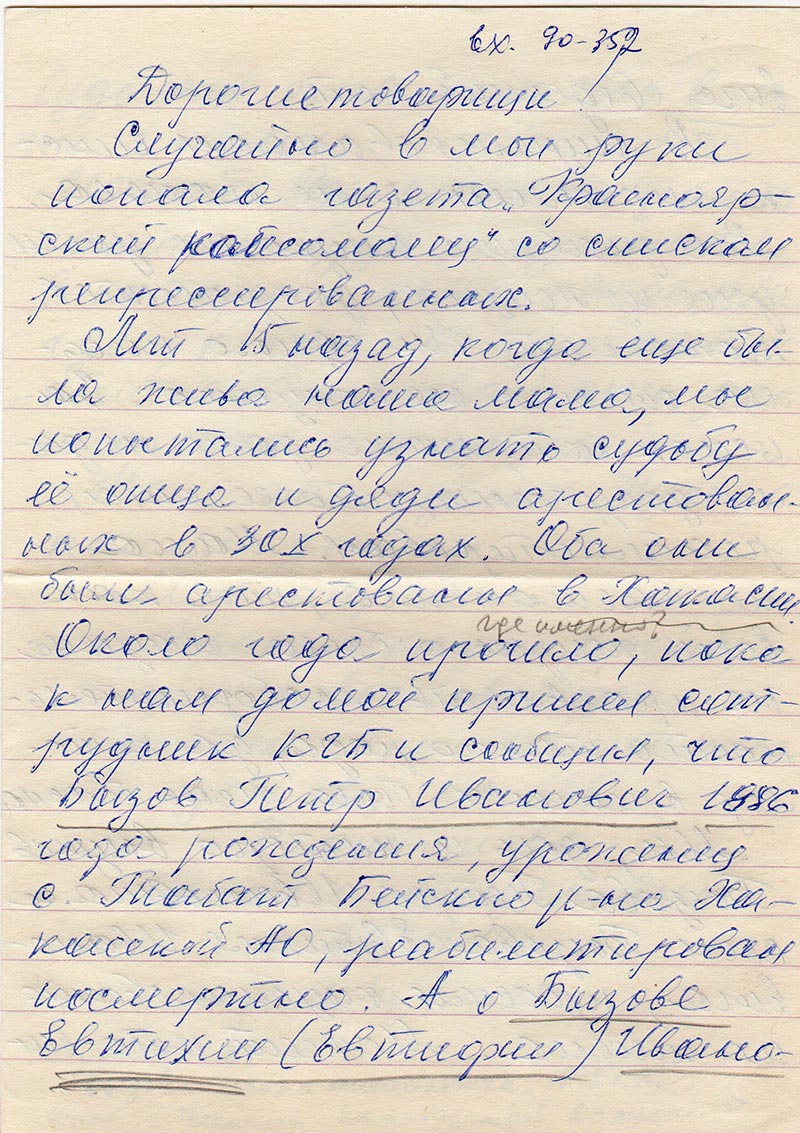 вх. 90-357
Дорогие товарищи
Случайно в мои руки
попала газета „Краснояр-
ский комсомолец" со списком
репрессированных.
Лет 15 назад, когда еще бы-
ла жива наша мама, мы
попытались узнать судьбу
её отца и дяди арестован-
ных в 30х годах. Оба они
были арестованы в Хакасии.
где именно?
Около года прошло, пока
к нам домой пришел сот-
рудник КГБ и сообщил, что
Бызов Петр Иванович
года рождения, уроженец
с. Табат Бейского р-на Ха-
касской АО, реабилитирован
посмертно. А о Бызове
Евтихии (Евтифии) Ивано-